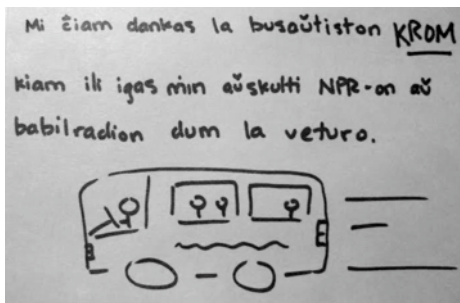 Mi ĉiam dankas la busaŭtiston KROM
kiam ili igas min aŭskulti NPR-on aŭ
babilradion dum la veturo.